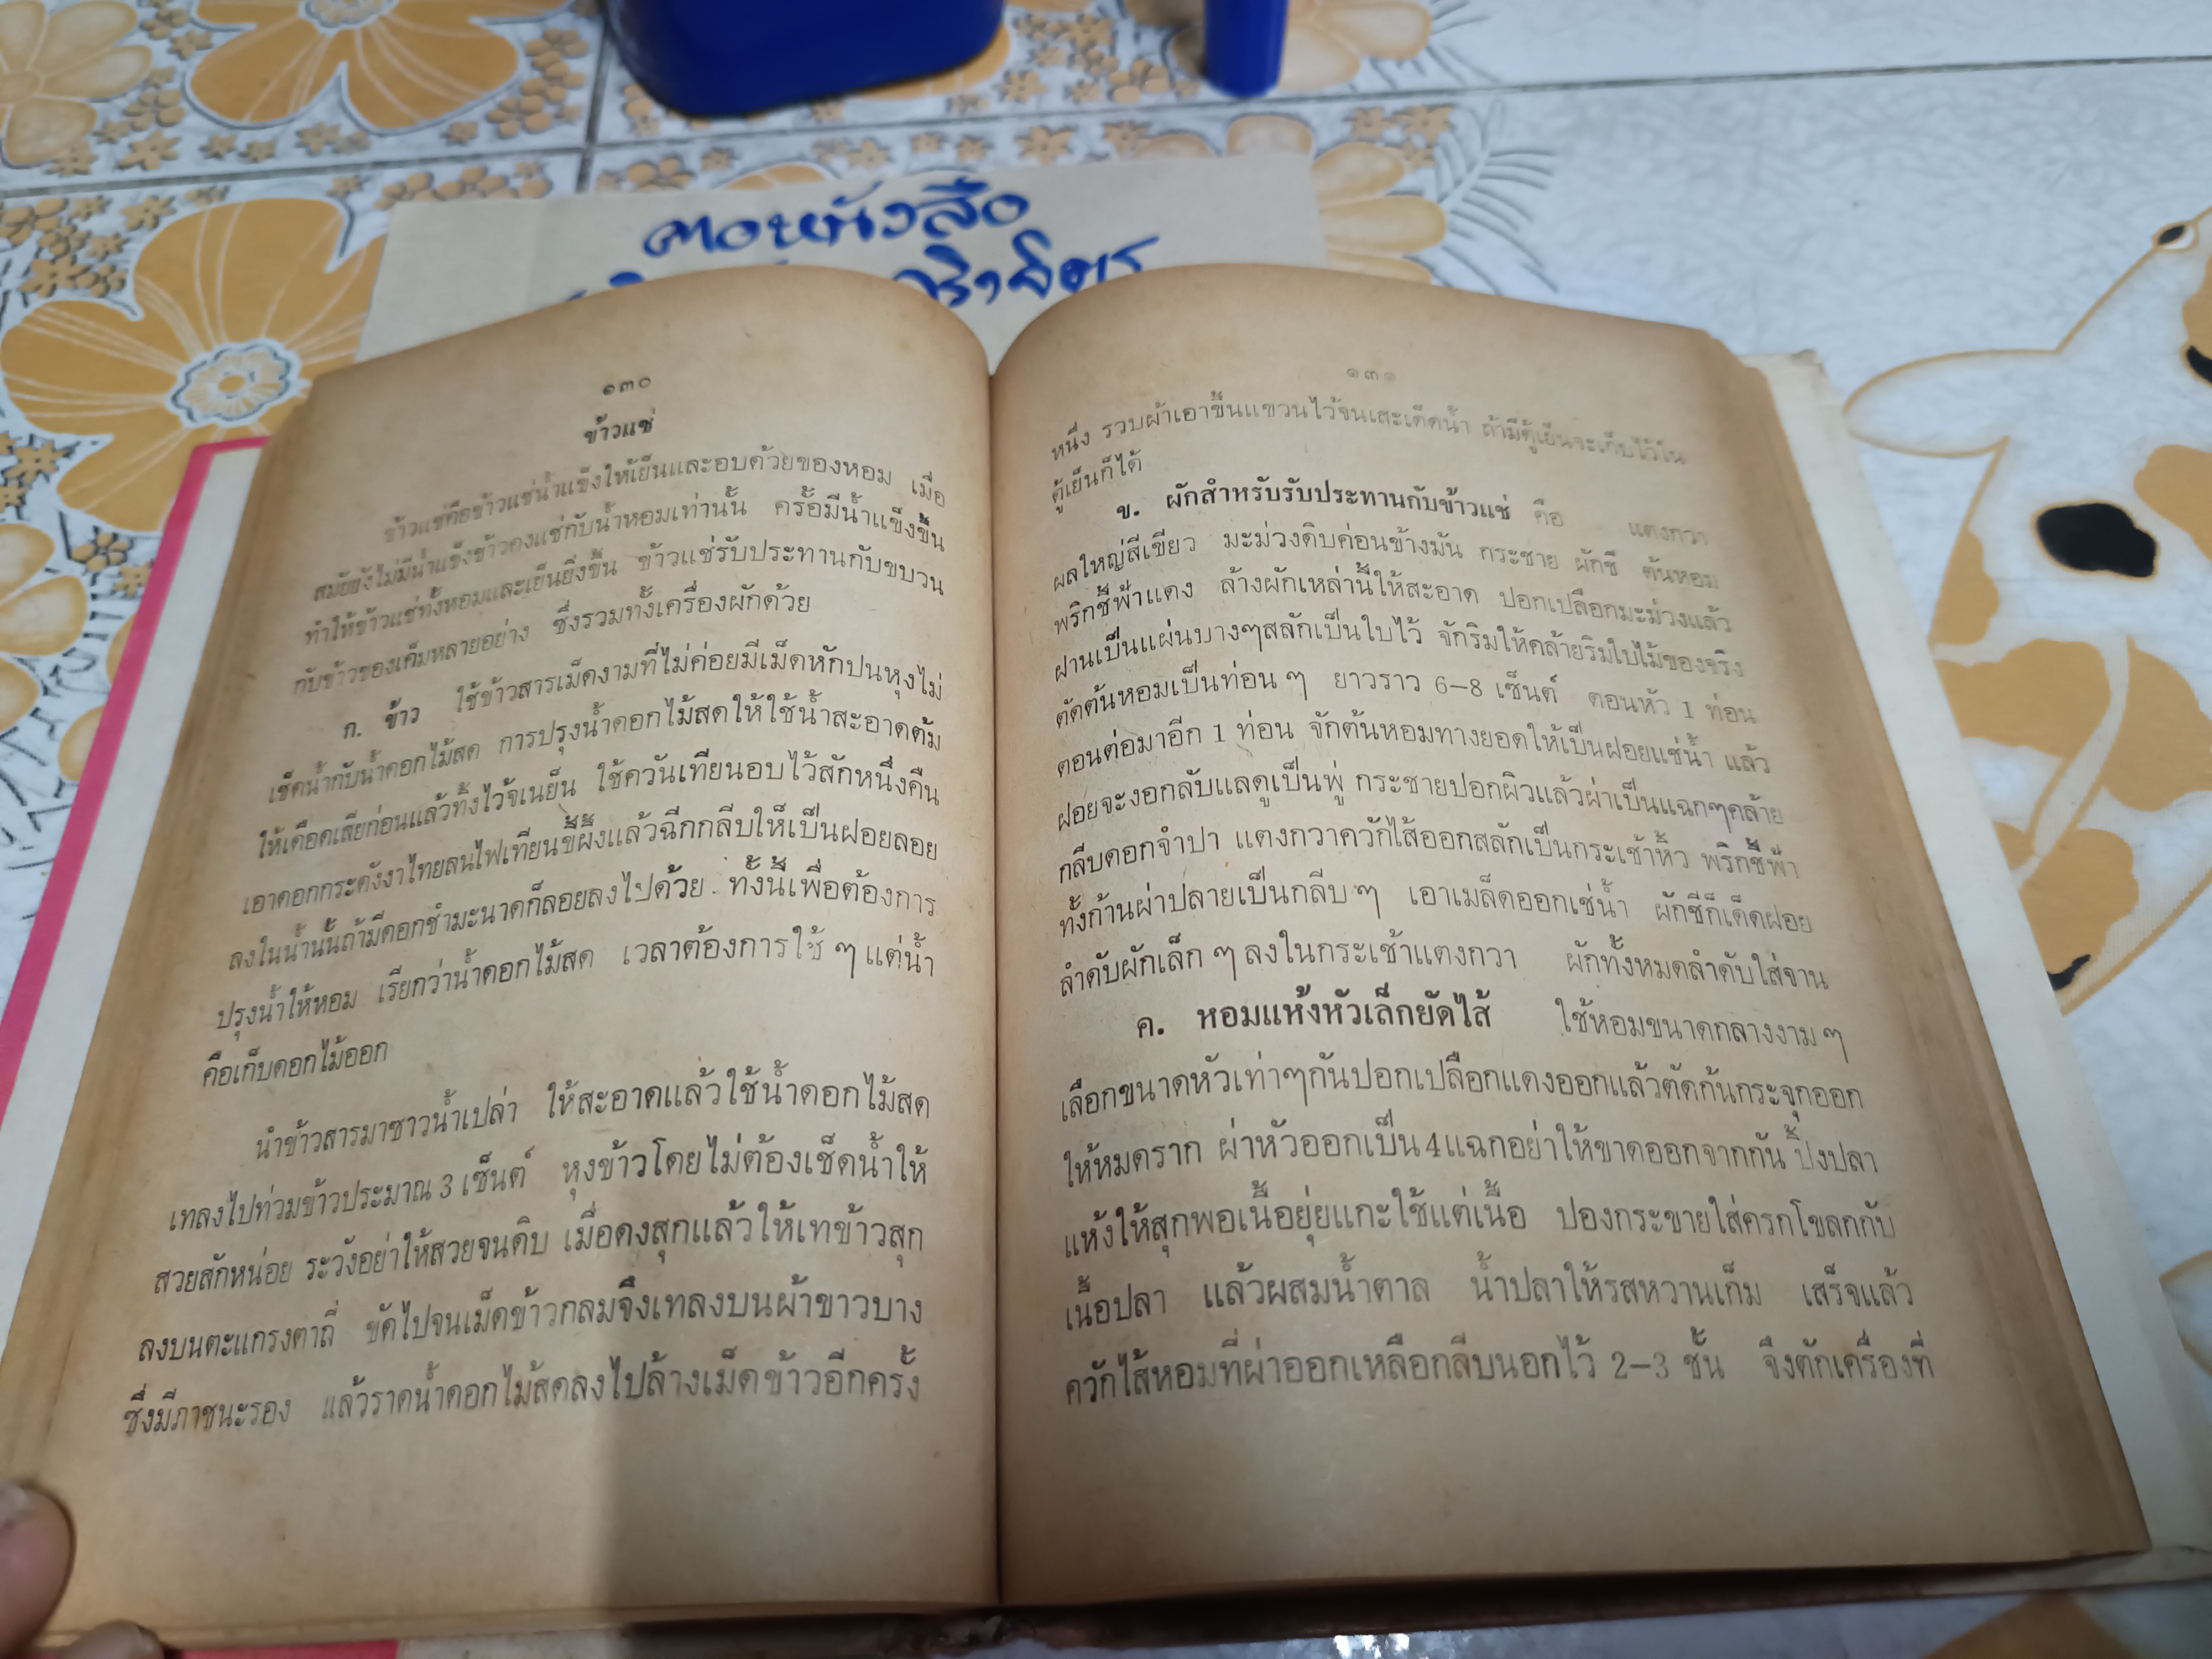 คาอหนังสือ
๑๓๐
ข้าวแช่
ข้าวแช่คือข้าวแช่น้ำแข็งให้เย็นและอบด้วยของหอม เมื่อ
สมัยยังไม่มีน้ำแข็งข้าวคงแช่กับน้ำหอมเท่านั้น ครั้อมีน้ำแข็งขึ้น
ทำให้ข้าวแช่ทั้งหอมและเย็นยิ่งขึ้น ข้าวแช่รับประทานกับขบวน
กับข้าวของเค็มหลายอย่าง ซึ่งรวมทั้งเครื่องผักด้วย
ก. ข้าว ใช้ข้าวสารเม็ดงามที่ไม่ค่อยมีเม็ดหักปนหุงไม่
เช็ดน้ำกับน้ำดอกไม้สด การปรุงน้ำดอกไม้สดให้ใช้น้ำสะอาดต้ม
ให้เดือดเสียก่อนแล้วทิ้งไว้จเนย็น ใช้ควันเทียนอบไว้สักหนึ่งคืน
เอาดอกกระดังงาไทยลนไฟเทียนขี้ผึ้งแล้วฉีกกลีบให้เป็นฝอยลอย
ลงในน้ำนั้นถ้ามีดอกชำมะนาดก็ลอยลงไปด้วย. ทั้งนี้เพื่อต้องการ
ปรุงน้ำให้หอม เรียกว่าน้ำดอกไม้สด เวลาต้องการใช้ ๆ แต่น้ำ
คือเก็บดอกไม้ออก
นำข้าวสารมาซาวน้ำเปล่า ให้สะอาดแล้วใช้น้ำดอกไม้สด
เทลงไปท่วมข้าวประมาณ 3 เซ็นต์ หุงข้าวโดยไม่ต้องเช็ดน้ำให้
สวยสักหน่อย ระวังอย่าให้สวยจนดิบ เมื่อดงสุกแล้วให้เทข้าวสุก
ลงบนตะแกรงตาถี่ ขัดไปจนเม็ดข้าวกลมจึงเทลงบนผ้าขาวบาง
ซึ่งมีภาชนะรอง แล้วราดน้ำดอกไม้สดลงไปล้างเม็ดข้าวอีกครั้ง
๑๓๑
หนึ่ง รวบผ้าเอาขึ้นแขวนไว้จนเสะเด็ดน้ำ ถ้ามีตู้เย็นจะเก็บไว้ใน
ตู้เย็นก็ได้
ข. ผักสำหรับรับประทานกับข้าวแช่ คือ แตงกวา
ผลใหญ่สีเขียว มะม่วงดิบค่อนข้างมัน กระชาย ผักชี ต้นหอม
พริกชี้ฟ้าแดง ล้างผักเหล่านี้ให้สะอาด ปอกเปลือกมะม่วงแล้ว
ฝานเป็นแผ่นบางๆสลักเป็นใบไว้ จักริมให้คล้ายริมใบไม้ของจริง
ตัดต้นหอมเป็นท่อน ๆ ยาวราว 6–8 เซ็นต์ ตอนหัว 1 ท่อน
ตอนต่อมาอีก 1 ท่อน จักต้นหอมทางยอดให้เป็นฝอยแช่น้ำ แล้ว
ฝอยจะงอกลับแลดูเป็นพู่ กระชายปอกผิวแล้วผ่าเป็นแฉกๆคล้าย
กลีบดอกจำปา แตงกวาควักไส้ออกสลักเป็นกระเช้าหิ้ว พริกชี้ฟ้า
ทั้งก้านผ่าปลายเป็นกลีบ ๆ เอาเมล็ดออกเช่น้ำ ผักชีก็เด็ดฝอย
ลำดับผักเล็ก ๆ ลงในกระเช้าแตงกวา ผักทั้งหมดลำดับใส่จาน
ค. หอมแห้งหัวเล็กยัดไส้ ใช้หอมขนาดกลางงาม ๆ
เลือกขนาดหัวเท่าๆกันปอกเปลือกแดงออกแล้วตัดก้นกระจุกออก
ให้หมดราก ผ่าหัวออกเป็น 4 แฉกอย่าให้ขาดออกจากกัน ปิ้งปลา
แห้งให้สุกพอเนื้อยุ่ยแกะใช้แต่เนื้อ ปองกระขายใส่ครกโขลกกับ
เนื้อปลา แล้วผสมน้ำตาล น้ำปลาให้รสหวานเก็ม เสร็จแล้ว
ควักไส้หอมที่ผ่าออกเหลือกลีบนอกไว้ 2–3 ชั้น จึงตักเครื่องที่